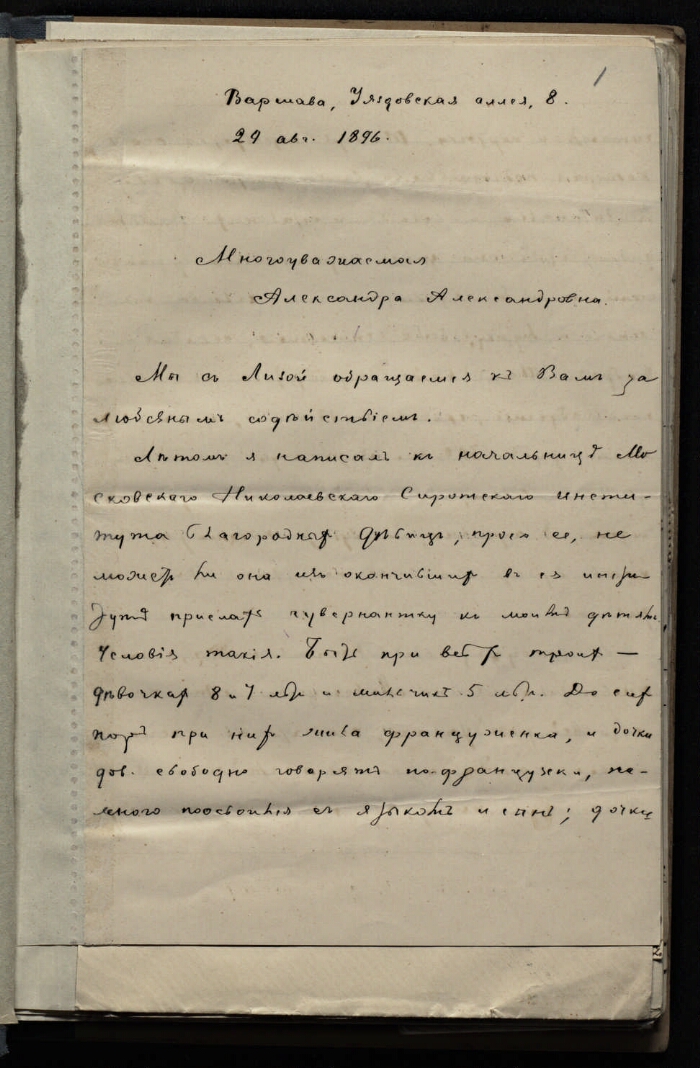 1
Варшава, Уяздовская аллея, 8.
29 авг. 1896.
Многоуважаемая
Александра Александровна.
Мы съ Лизой обращаемся къ Вамъ за
любезнымъ содѣйствіемъ.
Лѣтомъ я написалъ къ начальницѣ Мо
сковскаго Николаевскаго Сиротскаго инсти-
тута благородныхъ дѣвицъ, прося ее, не
можетъ ли она изъ окончившихъ въ ея инсти
тутѣ прислать гувернантку къ моимъ дѣтямъ
Условія такія. Быть при всѣхъ троихъ —
дѣвочкахъ 8 и 7 лѣтъ и мальчикѣ 5 лѣтъ. До сихъ
поръ при нихъ жила француженка, и дочки
дов. свободно говорятъ по-французски, не-
много поосвоился съ языкомъ и сынъ; дочки